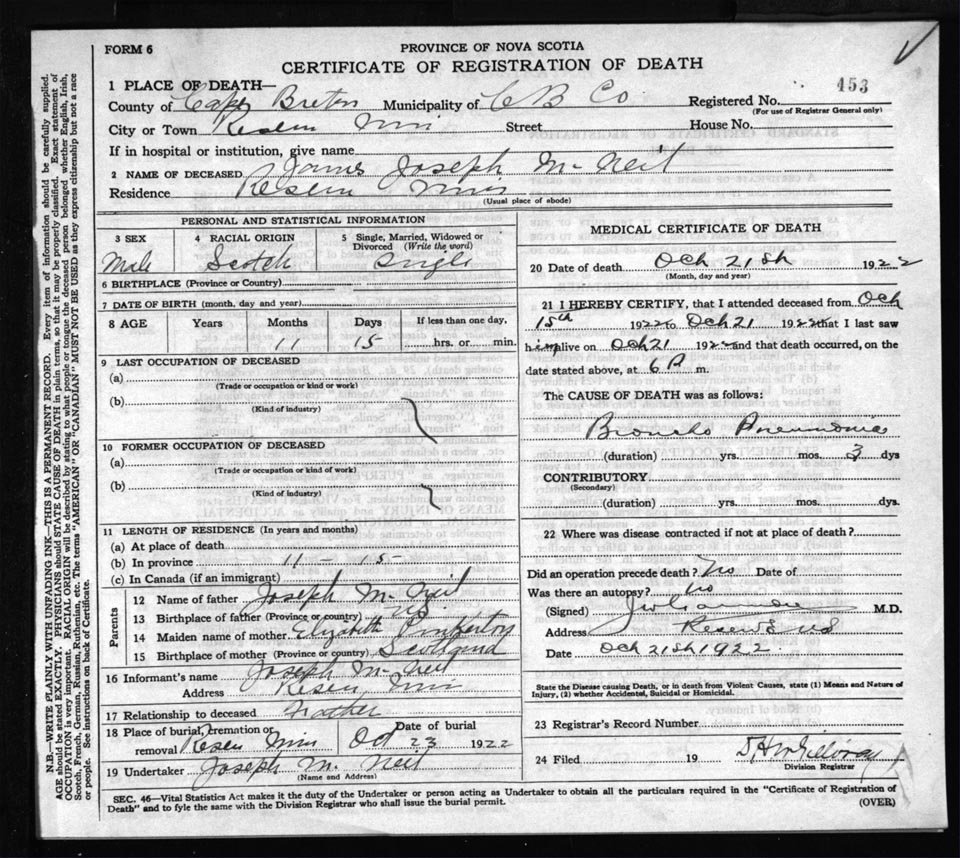 FORM 6
PROVINCE OF NOVA SCOTIA
CERTIFICATE OF REGISTRATION OF DEATH
453
1 PLACE OF DEATH—
County of Cape Breton Municipality of C B Co Registered No.
(For use of Registrar General only)
City or Town Street House No.
If in hospital or institution, give name
2 NAME OF DECEASED James Joseph McNeil
Residence
(Usual place of abode)
PERSONAL AND STATISTICAL INFORMATION
3 SEX 4 RACIAL ORIGIN 5 Single, Married, Widowed or Divorced (Write the word)
Male Scotch Single
6 BIRTHPLACE (Province or Country)
7 DATE OF BIRTH (month, day and year)
8 AGE Years Months Days If less than one day,
11 15 hrs. or min.
9 LAST OCCUPATION OF DECEASED
(a)
(Trade or occupation or kind of work)
(b)
(Kind of industry)
10 FORMER OCCUPATION OF DECEASED
(a)
(Trade or occupation or kind of work)
(b)
(Kind of industry)
11 LENGTH OF RESIDENCE (In years and months)
(a) At place of death
(b) In province 11 – 15
(c) In Canada (if an immigrant)
Parents
12 Name of father Joseph McNeil
13 Birthplace of father (Province or country) NS
14 Maiden name of mother Elizabeth Pinkerton
15 Birthplace of mother (Province or country) Scotland
16 Informant's name Joseph McNeil
Address
17 Relationship to deceased Father
18 Place of burial, cremation or removal Date of burial
Oct 23 1922
19 Undertaker Joseph McNeil
(Name and Address)
MEDICAL CERTIFICATE OF DEATH
20 Date of death Oct 21st 1922
(Month, day and year)
21 I HEREBY CERTIFY, that I attended deceased from Oct
15th 1922 to Oct 21 1922 that I last saw
him alive on Oct 21 1922 and that death occurred, on the
date stated above, at 6 P. m.
The CAUSE OF DEATH was as follows:
Broncho Pneumonia
(duration) yrs. mos. 3 dys
CONTRIBUTORY
(Secondary)
(duration) yrs. mos. dys.
22 Where was disease contracted if not at place of death?
Did an operation precede death? No Date of
Was there an autopsy? No
(Signed) M.D.
Address
Date Oct 21st 1922
State the Disease causing Death, or in death from Violent Causes, state (1) Means and Nature of
Injury, (2) whether Accidental, Suicidal or Homicidal.
23 Registrar's Record Number
24 Filed 19
Division Registrar
SEC. 46—Vital Statistics Act makes it the duty of the Undertaker or person acting as Undertaker to obtain all the particulars required in the "Certificate of Registration of
Death" and to fyle the same with the Division Registrar who shall issue the burial permit.
(OVER)
N.B.—WRITE PLAINLY WITH UNFADING INK—THIS IS A PERMANENT RECORD. Every item of information should be carefully supplied.
AGE should be stated EXACTLY. PHYSICIANS should STATE CAUSE OF DEATH in plain terms, so that it may be properly classified. Exact statement of
OCCUPATION is very important. RACIAL ORIGIN will be described by stating to what people or tongue the deceased person belonged whether English, Irish,
Scotch, French, German, Russian, Ruthenian, etc. The terms "AMERICAN" OR "CANADIAN" MUST NOT BE USED as they express citizenship but not a race
or people. See instructions on back of Certificate.